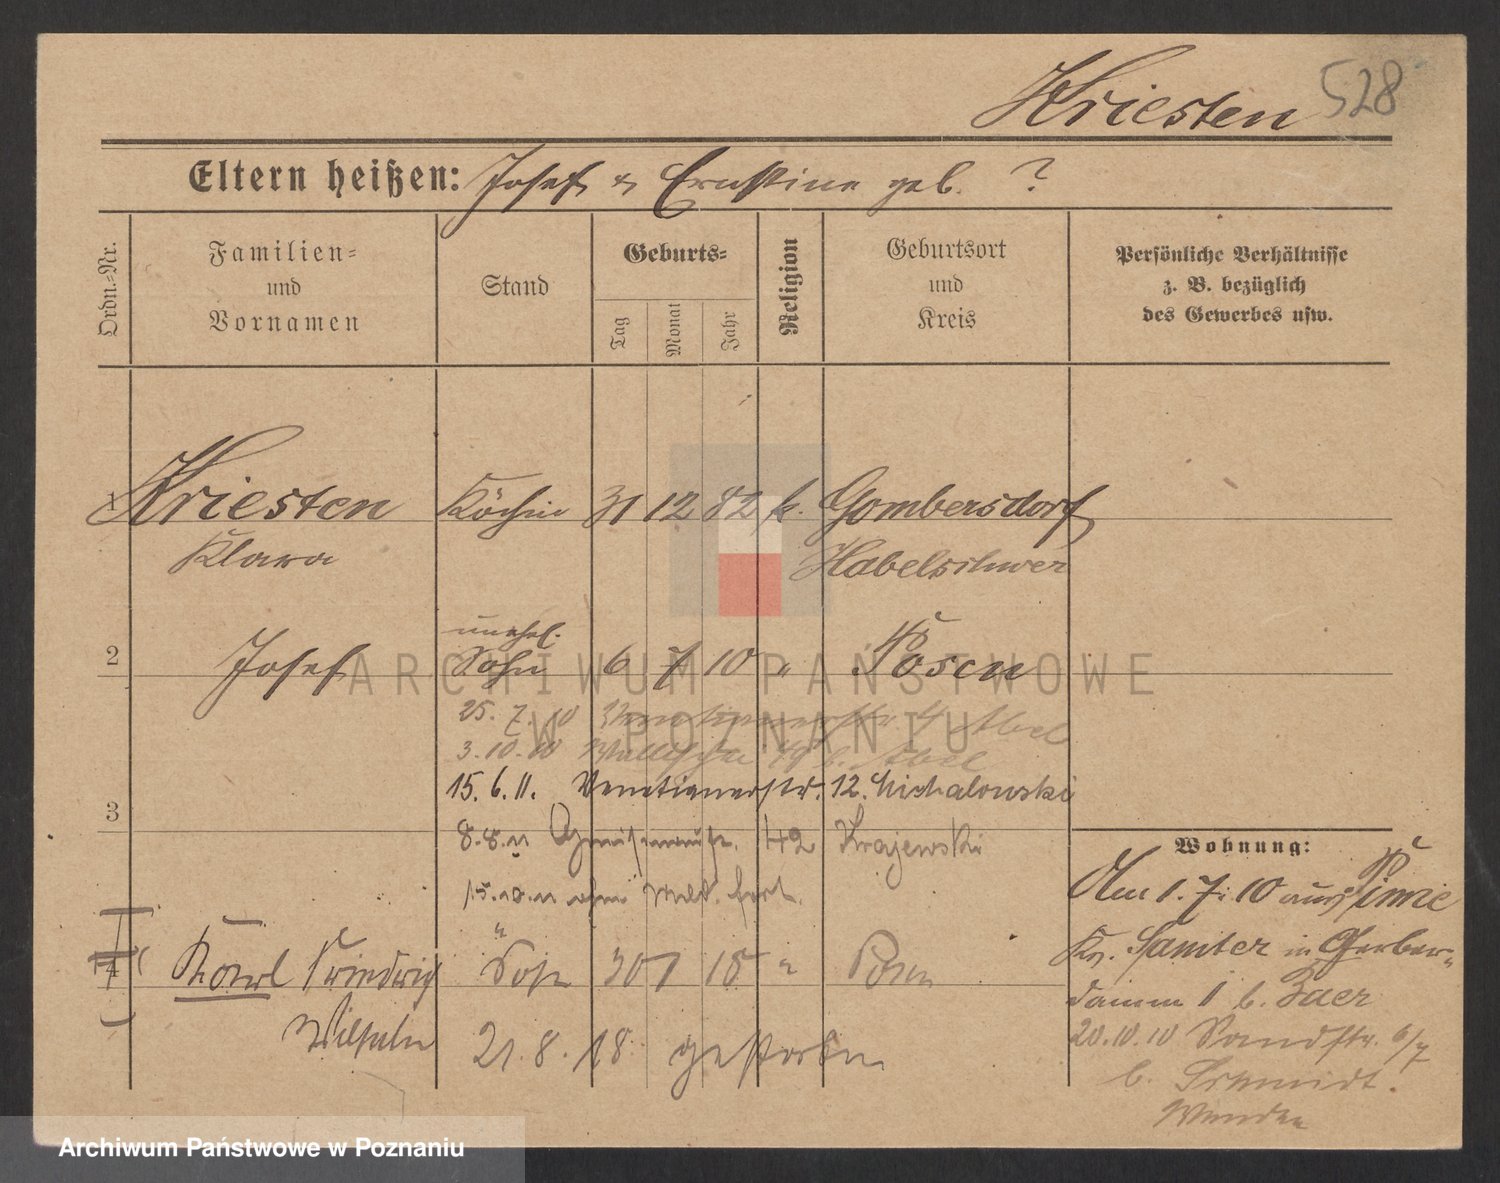 Kriesten 528
Eltern heißen: Josef & Ernstine geb. ?
Ordn.-Nr.
Familien-
und
Vornamen
Stand
Geburts-
Tag
Monat
Jahr
Religion
Geburtsort
und
Kreis
Persönliche Verhältnisse
z. B. bezüglich
des Gewerbes usw.
1 Kriesten Köchin 31 12 82 k. Gombersdorf
Klara Habelschwer
unehel.
2 Josef Sohn 6 7 10 " Posen
ARCHIWUM PAŃSTWOWE
W POZNANIU
25. 7. 10 Venetianerstr. 4 Abel
3.10.10 Wallischei b. Abel
15. 6. 11. Venetianerstr. 12. Michalowski
3
8.8.11 42 Krajewski
15.10.11 ohne Meld. fort.
"
4 Karl Friedrich Sohn 30 1 18 " Posen
Wilhelm 21. 8. 18 gestorben
Wohnung:
Am 1. 7. 10 aus Pinne
Kr. Samter in Gerber-
damm 1 b.
20.10.10 Sandstr. 6/7
b. Schmidt.
Archiwum Państwowe w Poznaniu